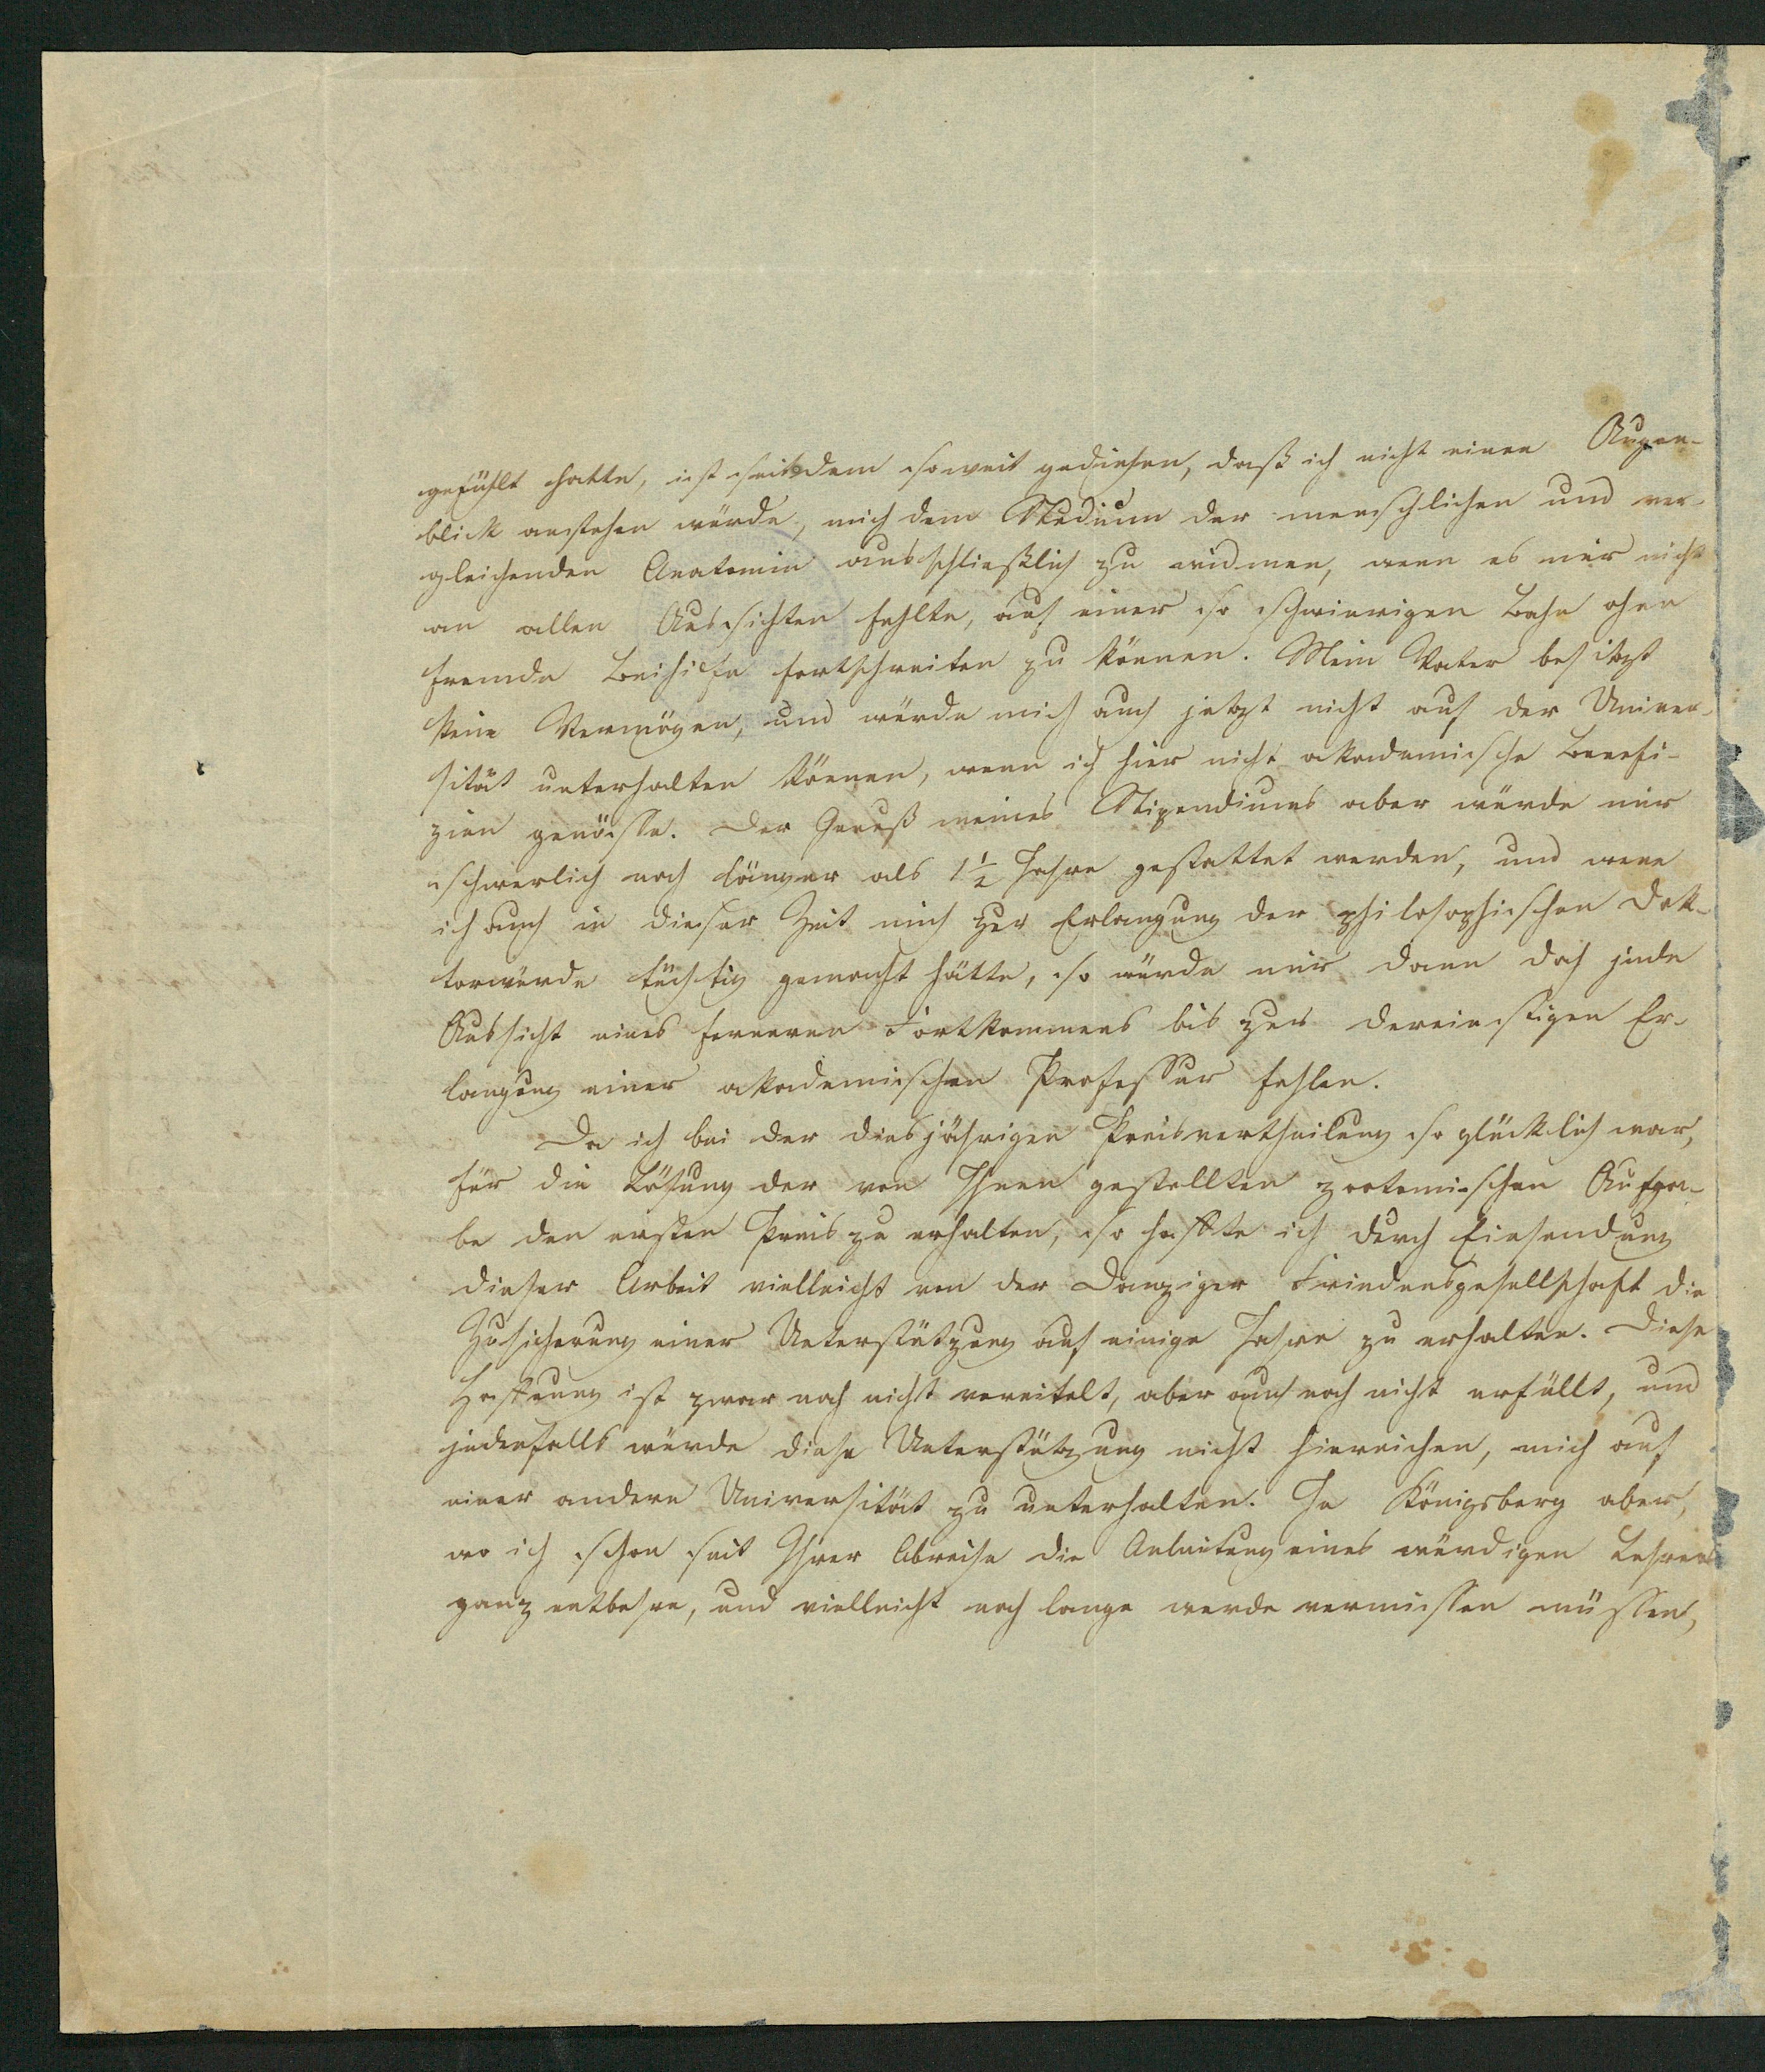 gefühlt hatte, ist seitdem soweit gediehen, daß ich nicht einen Augen-
blick anstehen würde, mich dem Studium der menschlichen und ver-
gleichenden Anatomie ausschließlich zu widmen, wenn es mir nicht
an allen Aussichten fehlte, auf einer so schwierigen Bahn ohne
fremde Beihilfe fortschreiten zu können. Mein Vater besitzt
kein Vermögen, und würde mich auch jetzt nicht auf der Univer-
sität unterhalten können, wenn ich hier nicht akademische Benefi-
zien genösse. Der Genuß meines Stipendiums aber würde mir
schwerlich noch länger als 1½ Jahre gestattet werden, und wenn
ich auch in dieser Zeit mich zur Erlangung der philosophischen Dok-
torwürde tüchtig gemacht hätte, so würde mir dann doch jede
Aussicht eines ferneren Fortkommens bis zur dereinstigen Er-
langung einer akademischen Professur fehlen.
Da ich bei der diesjährigen Preisvertheilung so glücklich war,
für die Lösung der von Ihnen gestellten zootomischen Aufga-
be den ersten Preis zu erhalten, so hoffte ich durch Einsendung
dieser Arbeit vielleicht von der Danziger Friedensgesellschaft die
Zusicherung einer Unterstützung auf einige Jahre zu erhalten. Diese
Hoffnung ist zwar noch nicht vereitelt, aber auch noch nicht erfüllt, und
jedenfalls würde diese Unterstützung nicht hinreichen, mich auf
einer andern Universität zu unterhalten. In Königsberg aber,
wo ich schon seit Ihrer Abreise die Anleitung eines würdigen Lehrers
ganz entbehre, und vielleicht noch lange werde vermissen müssen,